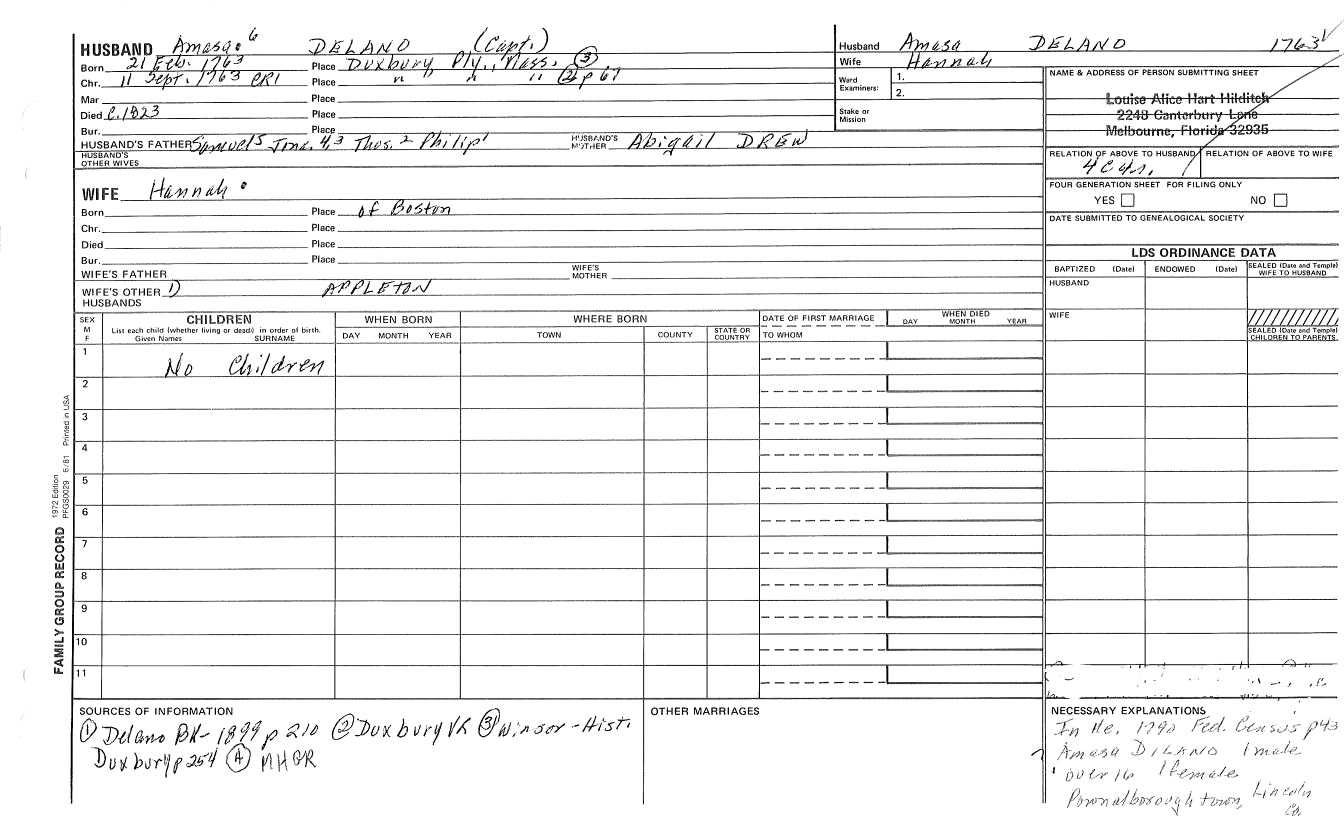 HUSBAND Amasa 6 DELANO (Capt.)
Born 21 Feb. 1763 Place Duxbury, Ply., Mass. ③
Chr. 11 Sept. 1763 CR1 Place " " " ② p 67
Mar Place
Died C. 1823 Place
Bur. Place
HUSBAND'S FATHER Samuel 5 Jona. 4,3 Thos. 2 Philip 1 HUSBAND'S MOTHER Abigail DREW
HUSBAND'S OTHER WIVES
WIFE Hannah
Born Place of Boston
Chr. Place
Died Place
Bur. Place
WIFE'S FATHER WIFE'S MOTHER
WIFE'S OTHER HUSBANDS 1) APPLETON
Husband Amasa DELANO 1763
Wife Hannah
Ward Examiners: 1.
2.
Stake or Mission
NAME & ADDRESS OF PERSON SUBMITTING SHEET
Louise Alice Hart Hilditch
2248 Canterbury Lane
Melbourne, Florida 32935
RELATION OF ABOVE TO HUSBAND RELATION OF ABOVE TO WIFE
FOUR GENERATION SHEET FOR FILING ONLY
YES NO
DATE SUBMITTED TO GENEALOGICAL SOCIETY
LDS ORDINANCE DATA
BAPTIZED (Date) ENDOWED (Date) SEALED (Date and Temple) WIFE TO HUSBAND
HUSBAND
WIFE
SEALED (Date and Temple) CHILDREN TO PARENTS
SEX M F
CHILDREN
List each child (whether living or dead) in order of birth.
Given Names SURNAME
WHEN BORN
DAY MONTH YEAR
WHERE BORN
TOWN COUNTY STATE OR COUNTRY
DATE OF FIRST MARRIAGE
TO WHOM
WHEN DIED
DAY MONTH YEAR
1 No Children
2
3
4
5
6
7
8
9
10
11
FAMILY GROUP RECORD
1972 Edition
PFGS0029 6/81 Printed in USA
SOURCES OF INFORMATION
① Delano BK- 1899 p 210 ② Duxbury VR ③ Winsor - Hist.
Duxbury p 254 ④
OTHER MARRIAGES
NECESSARY EXPLANATIONS
In Me. 1790 Fed. Census p43
Amasa DILANO 1 male
over 16 1 female
Pownalborough town, Lincoln
Co.